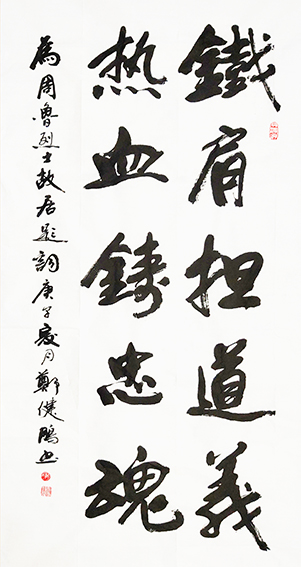 鐵肩担道義
热血鑄忠魂
為周魯烈士故居題詞庚子夏月鄭健鵬书